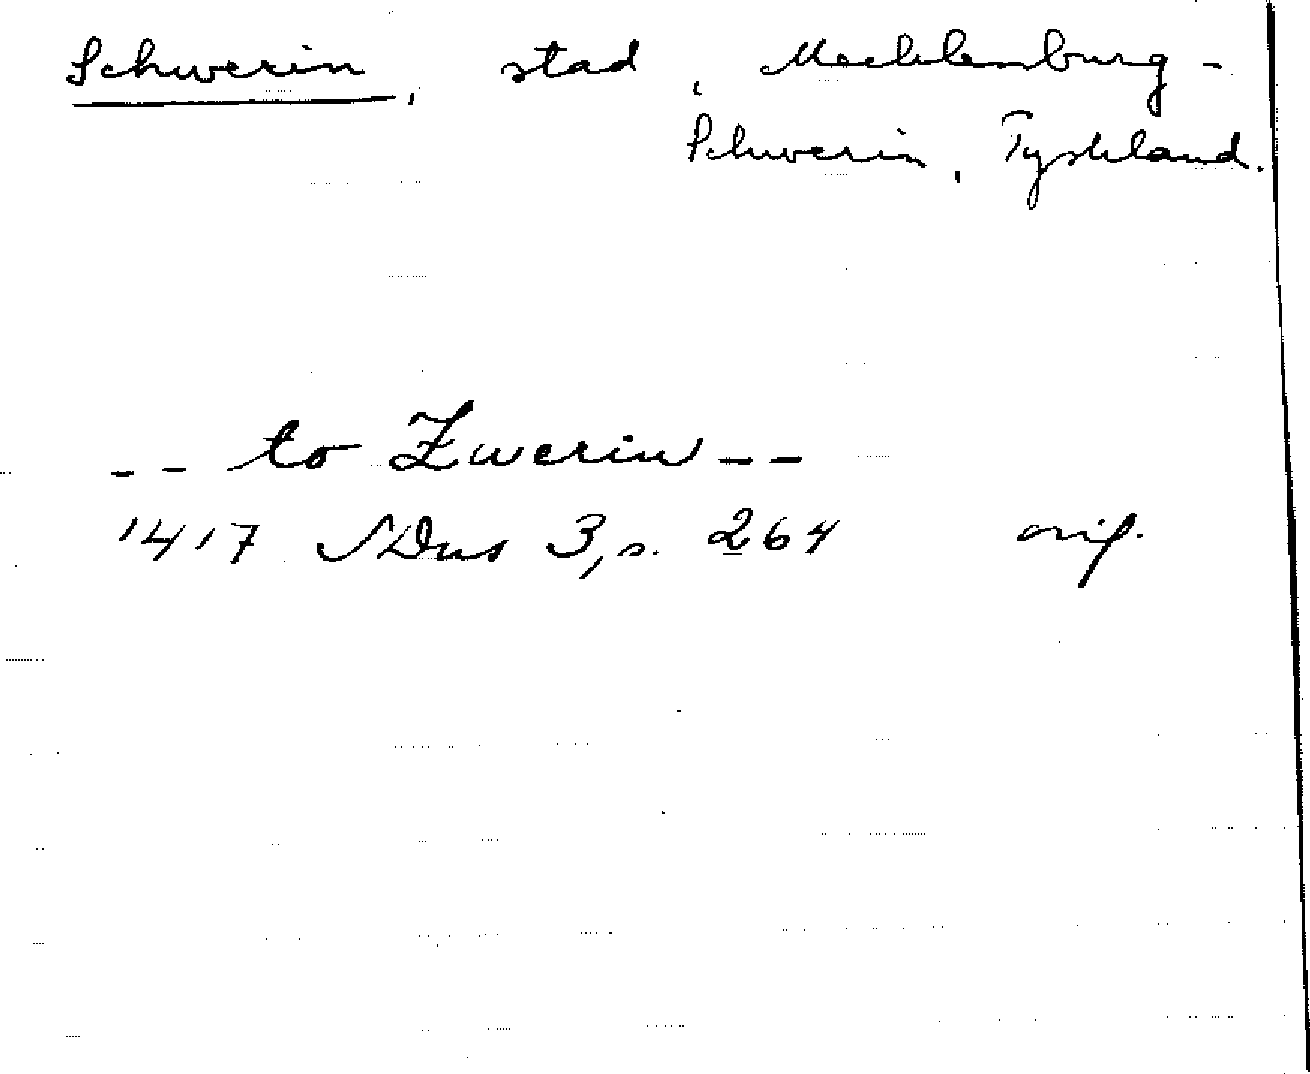 Schwerin, stad, Mecklenburg-
Schwerin, Tyskland.
-- to Zwerin --
1417 SDns 3, s. 264 orig.